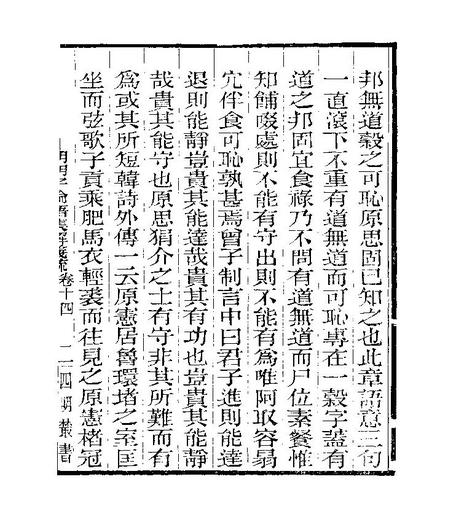 邦無道穀之可恥原思固已知之也此章語意三句
一直滾下不重有道無道而可恥專在一穀字蓋有
道之邦固宜食祿乃不問有道無道而尸位素餐惟
知餔啜處則不能有守出則不能有為唯阿取容曷
宂伴食可恥孰甚焉曾子制言中曰君子進則能達
退則能靜豈貴其能達哉貴其有功也豈貴其能靜
哉貴其能守也原思狷介之士有守非其所難而有
為或其所短韓詩外傳一云原憲居魯環堵之室匡
坐而弦歌子貢乘肥馬衣輕裘而往見之原憲楮冠
論語集注箋疏卷十四
二
四明叢書